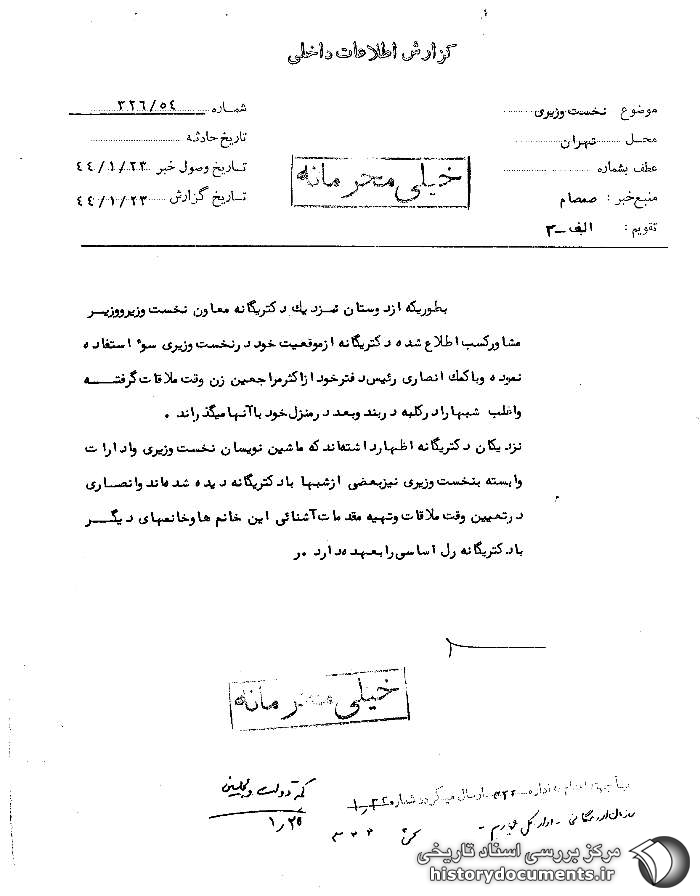 گزارش اطلاعات داخلی
موضوع نخست وزیری
محل تهران
عطف بشماره
منبع خبر : صمصام
تقویم : الف ـ ۳
شماره ۳۲۶/۵۴
تاریخ حادثه
تاریخ وصول خبر ۴۴/۱/۲۳
تاریخ گزارش ۴۴/۱/۲۳
خیلی محرمانه
بطوریکه از دوستان نزدیک دکتریگانه معاون نخست وزیرووزیر
مشاورکسب اطلاع شده دکتریگانه ازموقعیت خود درنخست وزیری سوء استفاده
نموده وباکمک انصاری رئیس دفترخود ازاکثرمراجعین زن وقت ملاقات گرفته
واغلب شبهارادرکلبه دربند وبعد درمنزل خود باآنها میگذراند .
نزدیکان دکتریگانه اظهارداشته‌اند که ماشین نویسان نخست وزیری وادارات
وابسته بنخست وزیری نیزبعضی ازشبها بادکتریگانه دیده شده‌اند وانصاری
درتعیین وقت ملاقات وتهیه مقدمات آشنائی این خانم هاوخانمهای دیگر
بادکتریگانه رل اساسی رابعهده دارد . ر
خیلی محرمانه
اداره ۳۲۲ ارسال میگردد شماره
۱/۲۵
۳۲۲
مرکز بررسی اسناد تاریخی
historydocuments.ir